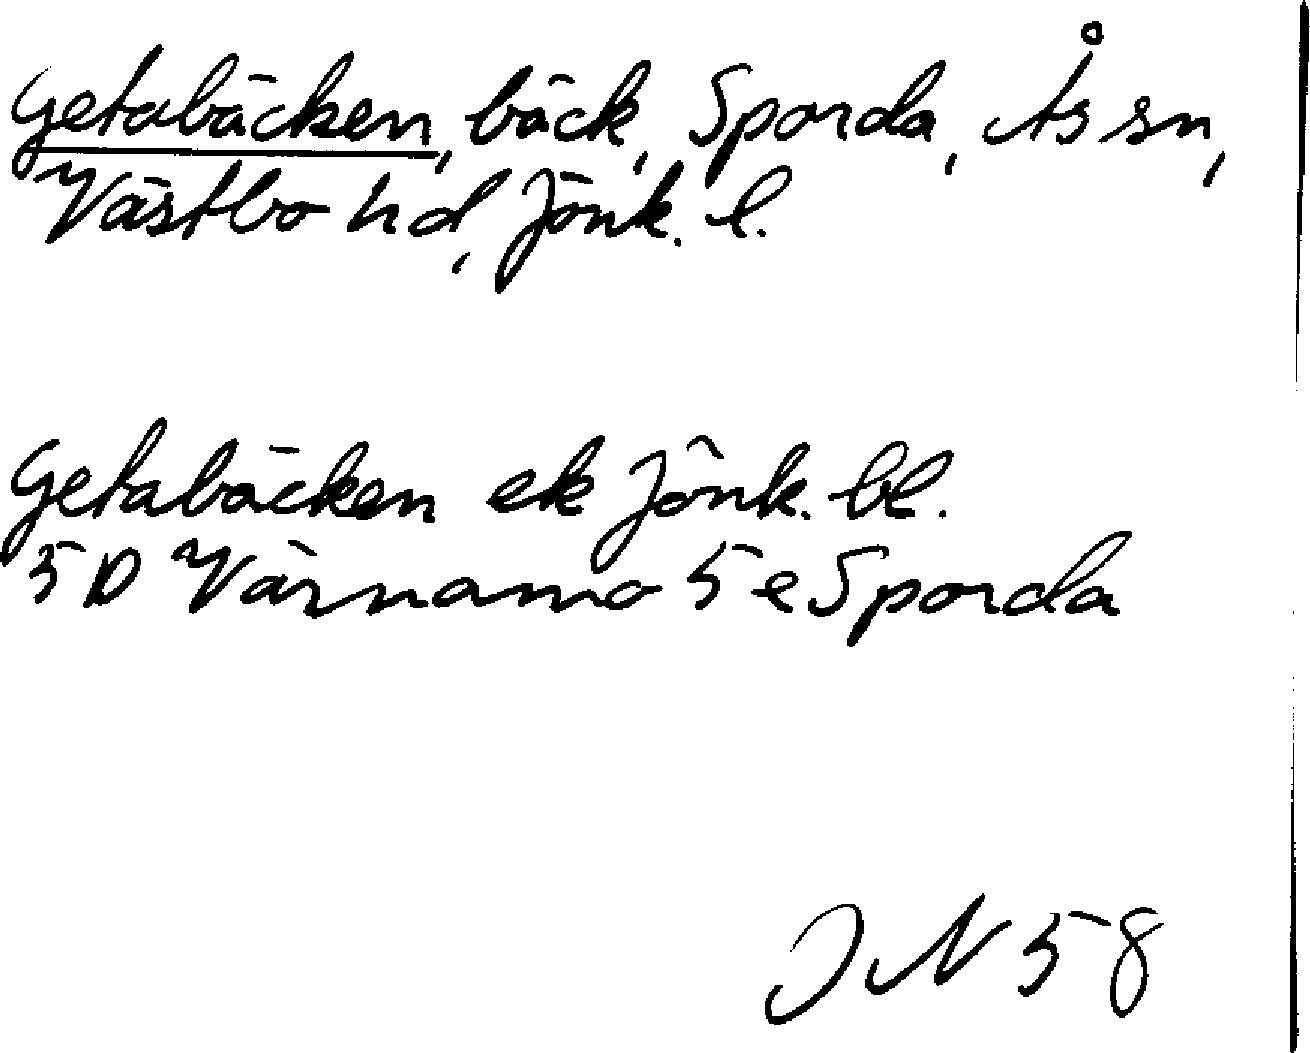 Getabäcken, bäck, Sporda, Ås sn,
Västbo hd, Jönk. l.
Getabäcken ek Jönk. bl.
5D Värnamo 5e Sporda
JN 58